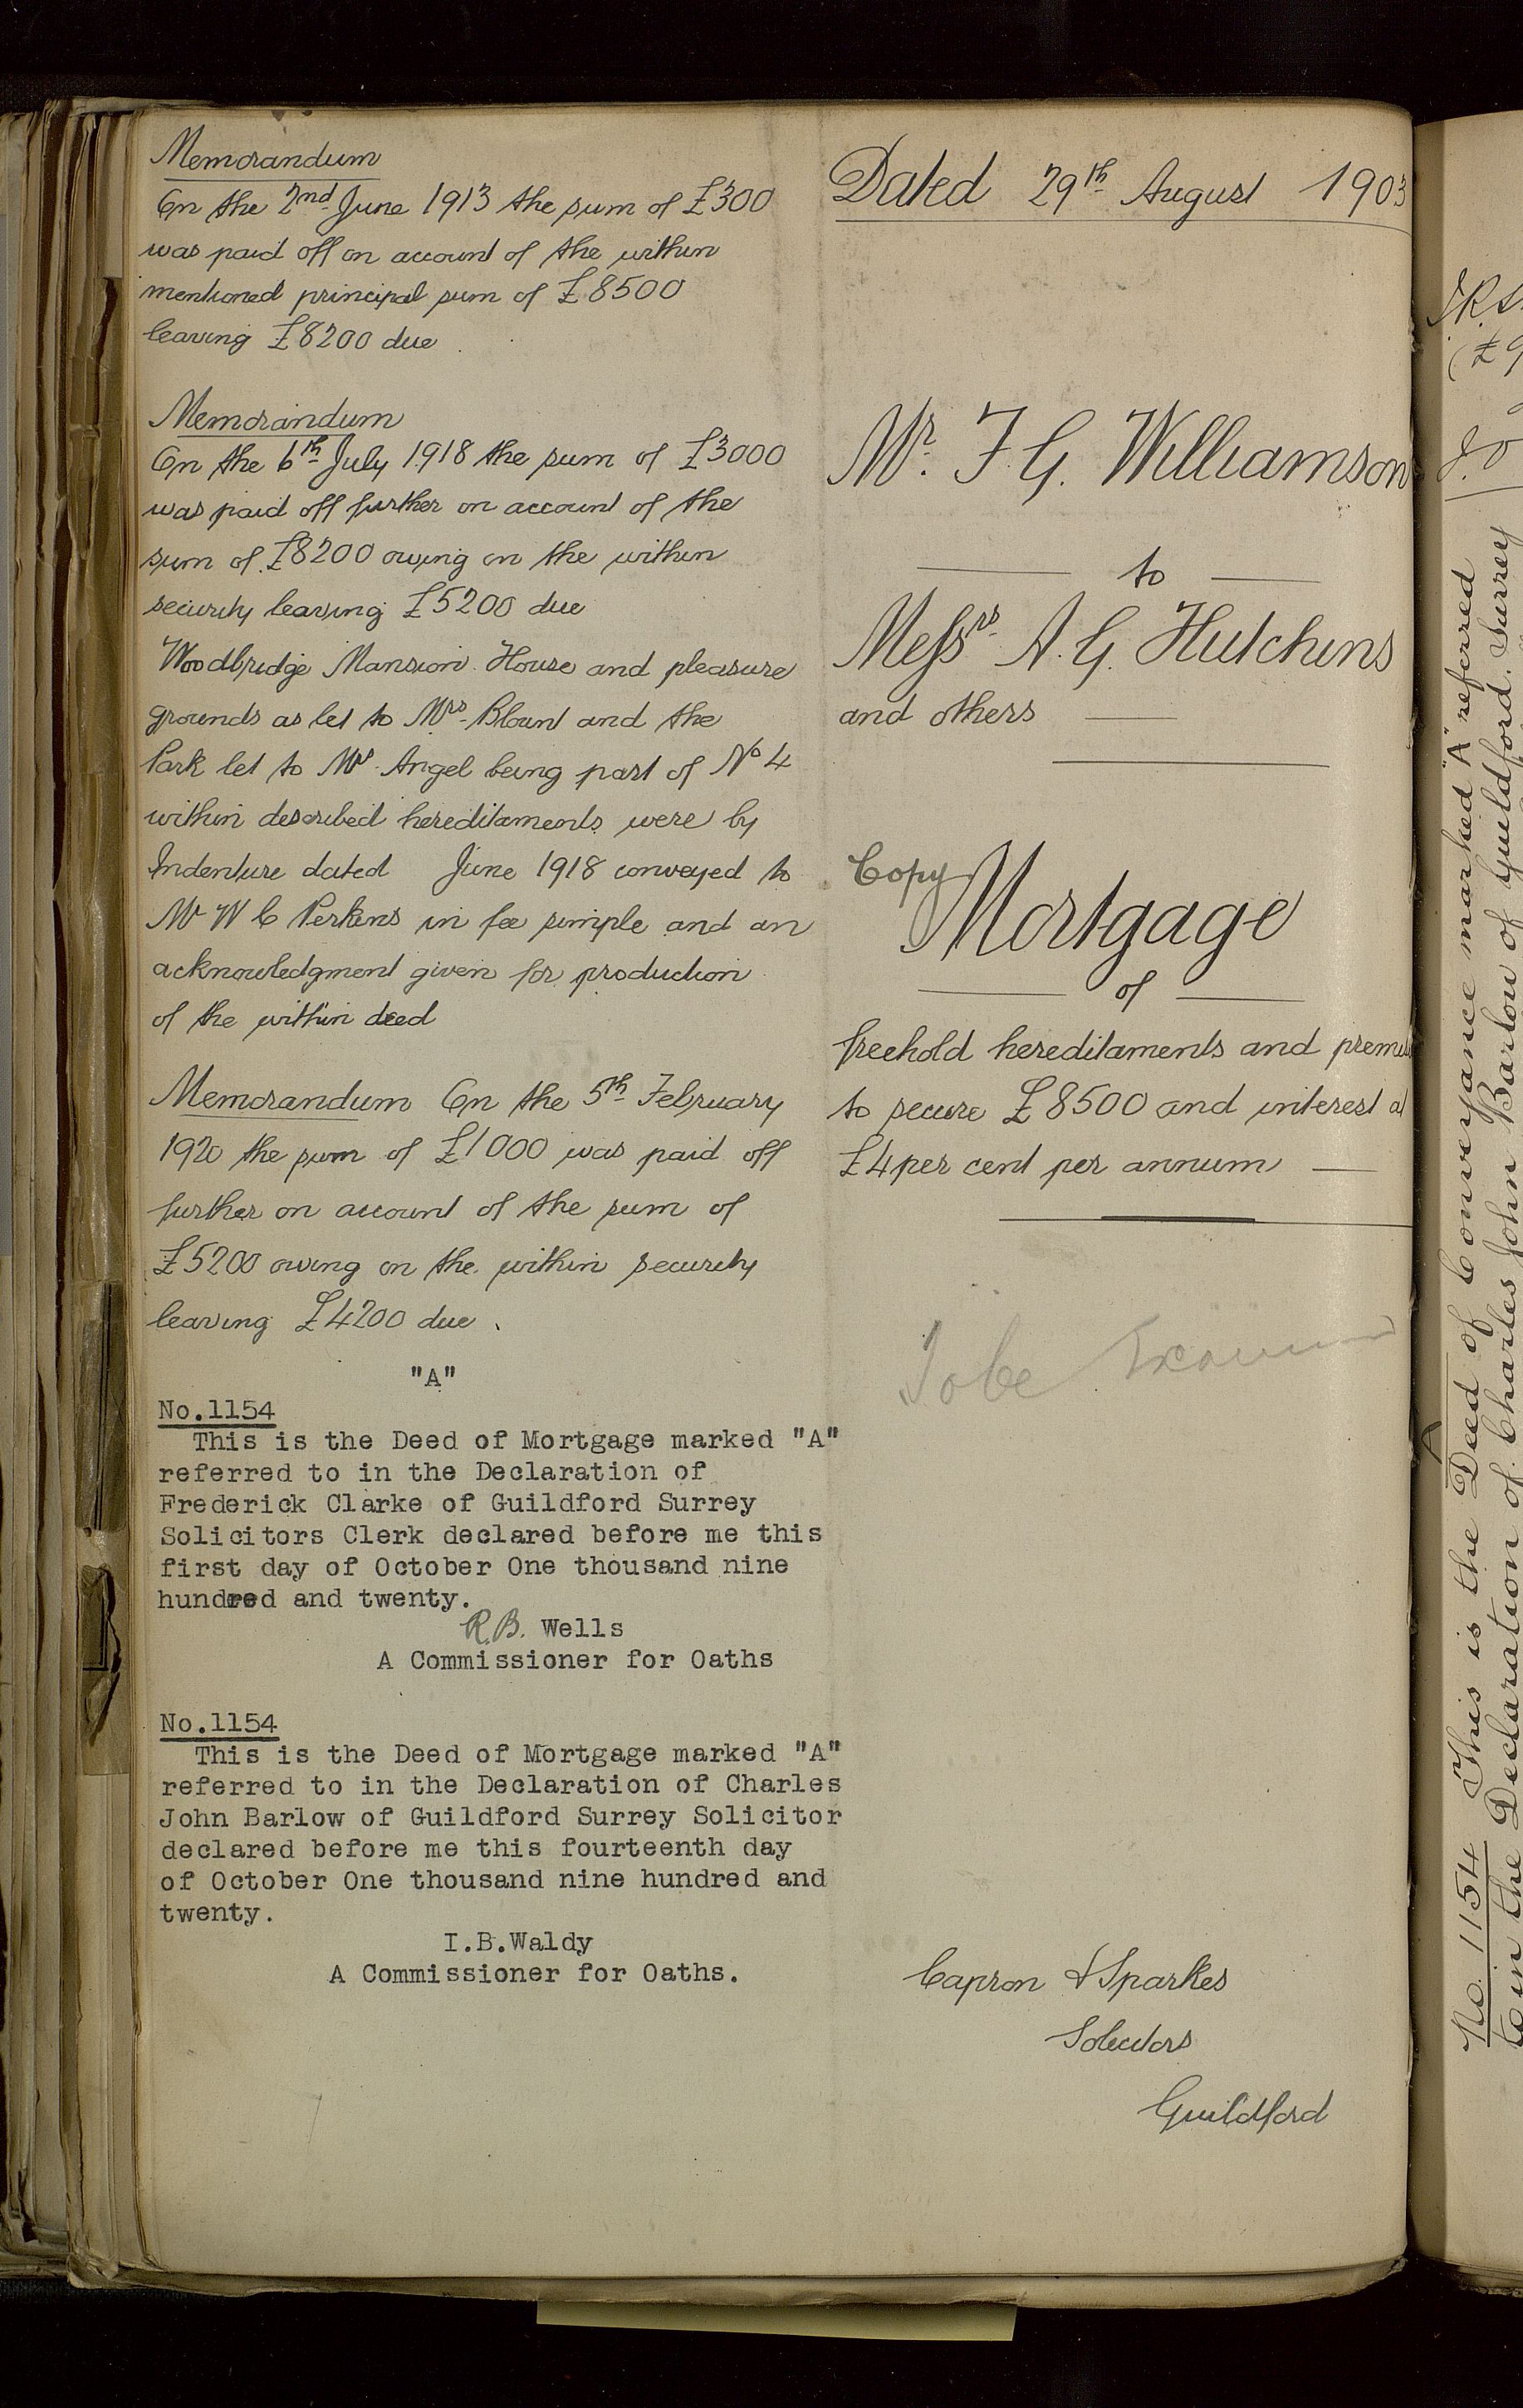 Memorandum
On the 2nd June 1913 the sum of £300
was paid off on account of the within
mentioned principal sum of £8500
leaving £8200 due
Memorandum
On the 6th July 1918 the sum of £3000
was paid off further on account of the
sum of £8200 owing on the within
security leaving £5200 due
Woodbridge Mansion House and pleasure
grounds as let to Mrs Blount and the
Park let to Mr Angel being part of No 4
within described hereditaments were by
Indenture dated June 1918 conveyed to
Mr W C Perkins in fee simple and an
acknowledgment given for production
of the within deed
Memorandum On the 5th February
1920 the sum of £1000 was paid off
further on account of the sum of
£5200 owing on the within security
leaving £4200 due.
"A"
No.1154
This is the Deed of Mortgage marked "A"
referred to in the Declaration of
Frederick Clarke of Guildford Surrey
Solicitors Clerk declared before me this
first day of October One thousand nine
hundred and twenty.
R.B. Wells
A Commissioner for Oaths
No.1154
This is the Deed of Mortgage marked "A"
referred to in the Declaration of Charles
John Barlow of Guildford Surrey Solicitor
declared before me this fourteenth day
of October One thousand nine hundred and
twenty.
I.B.Waldy
A Commissioner for Oaths.
Dated 29th August 1903
Mr. F. G. Williamson
to
Messrs A. G. Hutchins
and others
Copy
Mortgage
of
freehold hereditaments and
to secure £8500 and interest at
£4 per cent per annum
To be
Capron & Sparkes
Solicitors
Guildford
No. 1154 This is the Deed of Conveyance marked "A" referred
to in the Declaration of Charles John Barlow of Guildford. Surrey